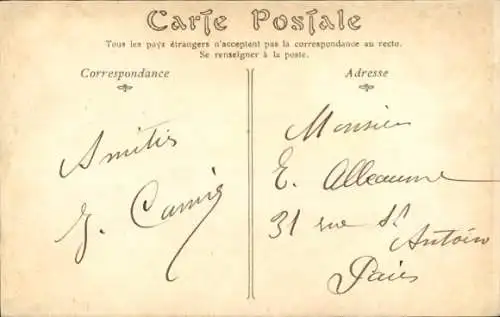 Carte Postale
Tous les pays étrangers n'acceptent pas la correspondance au recto.
Se renseigner à la poste.
Correspondance
Amitiés
Adresse
Monsieur
E. Alleaume
31 rue St
Antoin
Paris